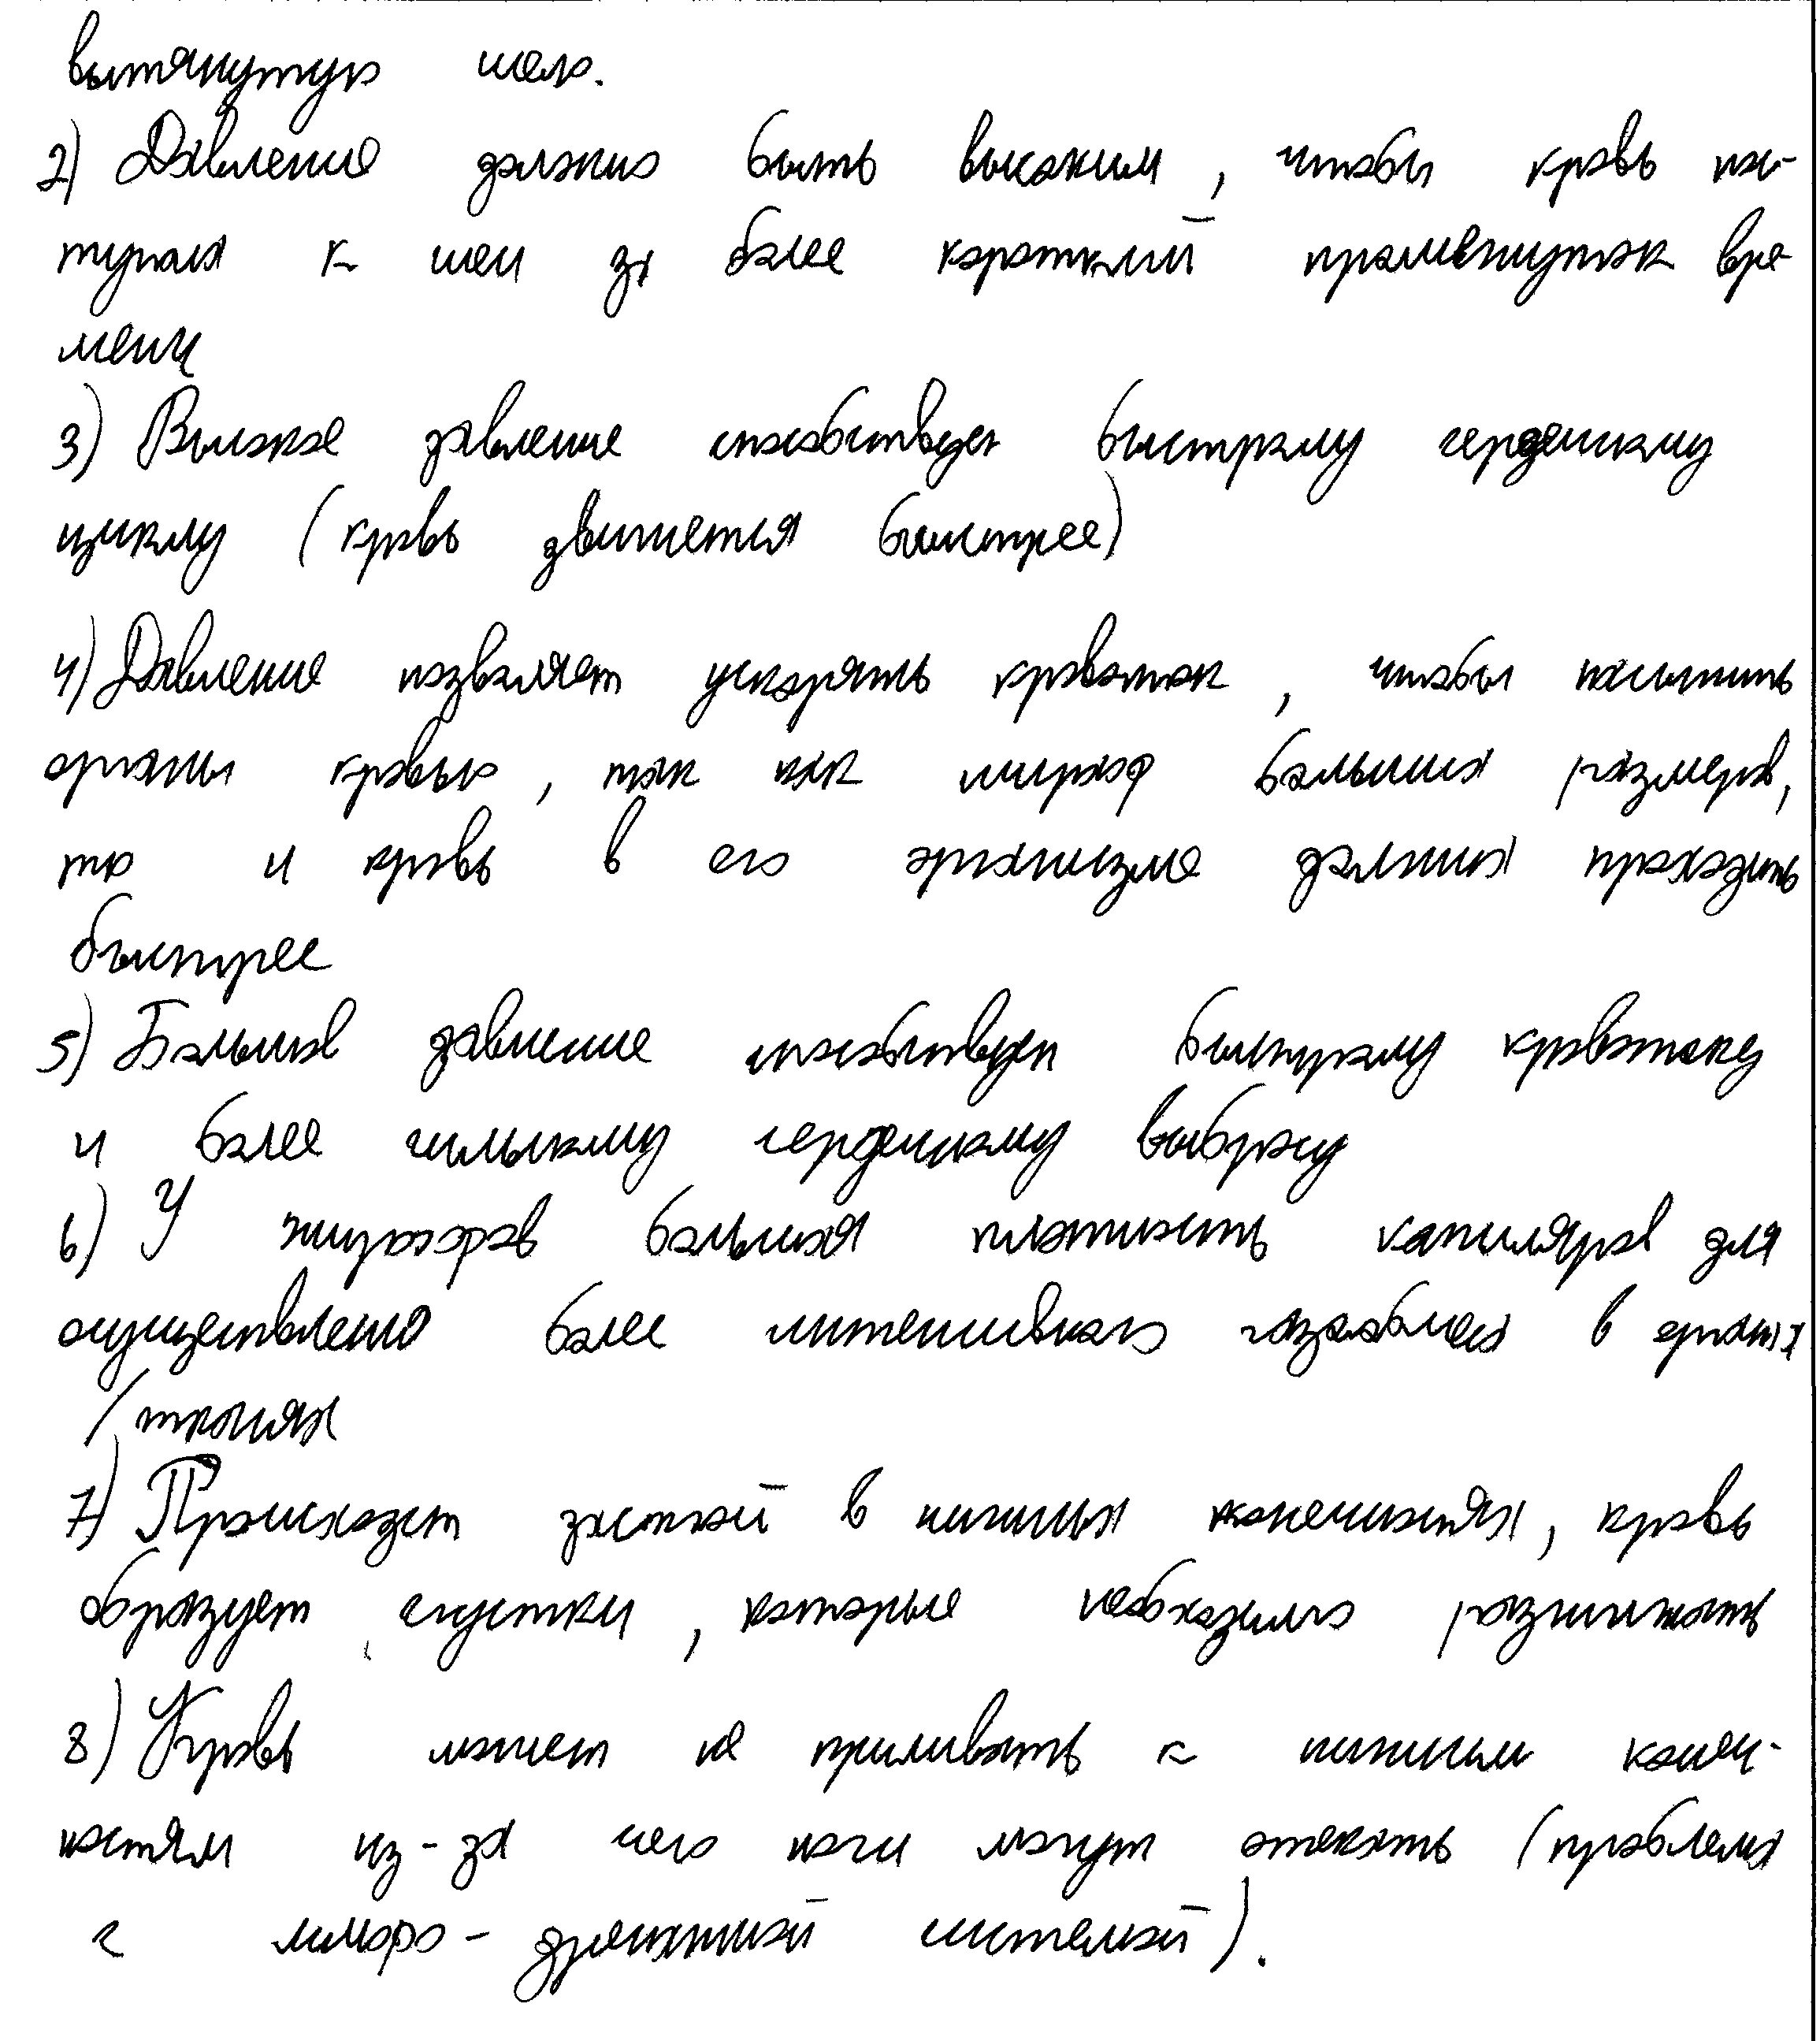 вытянутую шею.
2) Давление должно быть высоким, чтобы кровь пос-
тупала к шеи за более короткий промежуток вре-
мени
3) Высокое давление способствует быстрому сердечному
циклу (кровь движется быстрее)
4) Давление позволяет ускорять кровоток, чтобы насытить
органы кровью, так как жираф больших размеров,
то и кровь в его организме должна проходить
быстрее
5) Большое давление способствует быстрому кровотоку
и более сильному сердечному выбросу
6) У жирафов большая плотность капиляров для
осуществления более интенсивного газообмена в органах
/тканях
7) Происходит застой в нижних конечностях, кровь
образует сгустки, которые необходимо разжижать
8) Кровь может не приливать к нижним конеч-
ностям из-за чего ноги могут отекать (проблема
с лимфо-дренажной системой).